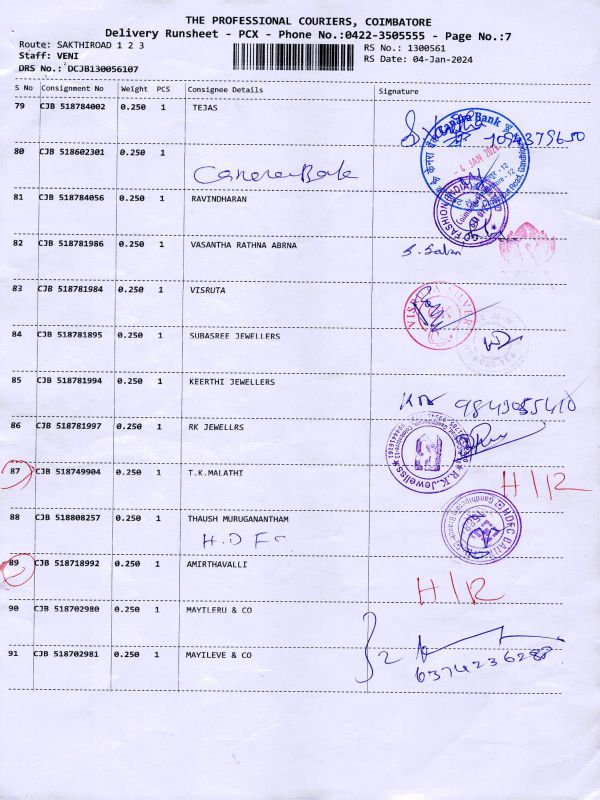 THE PROFESSIONAL COURIERS, COIMBATORE
Delivery Runsheet - PCX - Phone No.:0422-3505555 - Page No.:7
Route: SAKTHIROAD 1 2 3 RS No.: 1300561
Staff: VENI RS Date: 04-Jan-2024
DRS No.: DCJB130056107
S No Consignment No Weight PCS Consignee Details Signature
79 CJB 518784002 0.250 1 TEJAS
80 CJB 518602301 0.250 1
Canara Bank
4 JAN 2024
81 CJB 518784056 0.250 1 RAVINDHARAN
82 CJB 518781986 0.250 1 VASANTHA RATHNA ABRNA
83 CJB 518781984 0.250 1 VISRUTA
84 CJB 518781895 0.250 1 SUBASREE JEWELLERS
85 CJB 518781994 0.250 1 KEERTHI JEWELLERS
9843055410
86 CJB 518781997 0.250 1 RK JEWELLRS
R.K.Jewelles
87 CJB 518749904 0.250 1 T.K.MALATHI H/R
88 CJB 518808257 0.250 1 THAUSH MURUGANANTHAM
H.D.F.C
HDFC BANK
89 CJB 518718992 0.250 1 AMIRTHAVALLI H/R
90 CJB 518702980 0.250 1 MAYILERU & CO
2
6374236288
91 CJB 518702981 0.250 1 MAYILEVE & CO